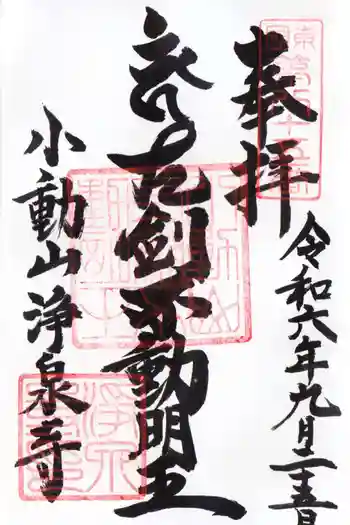 奉拝
令和六年九月二十五日
剣不動明王
小動山浄泉寺